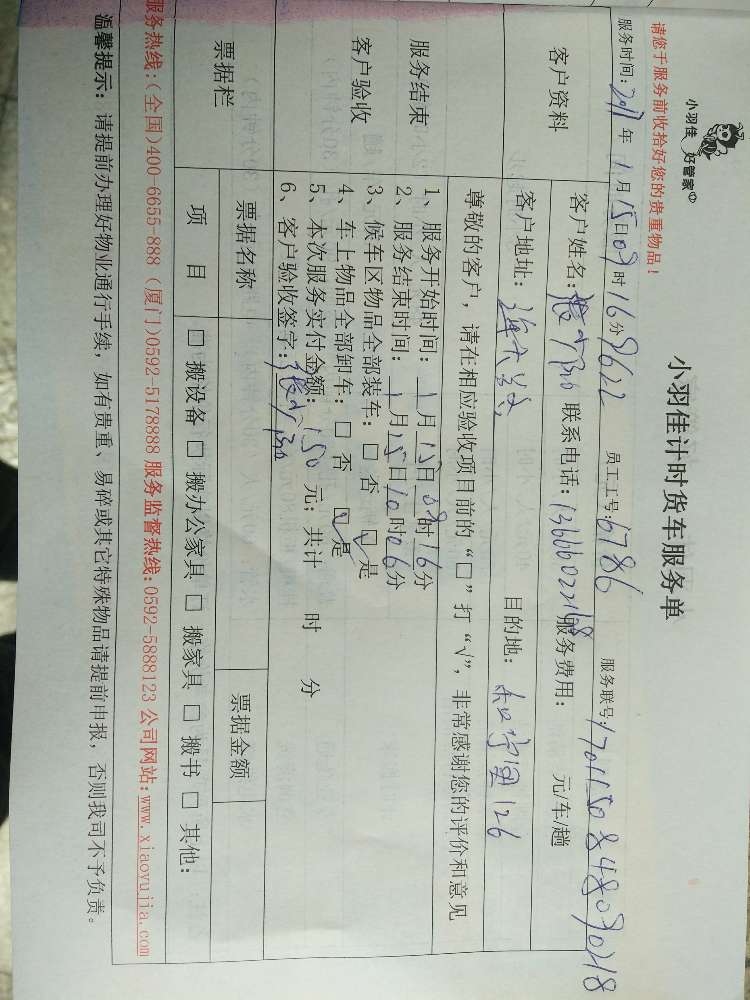 小羽佳 好管家
小羽佳计时货车服务单
请您于服务前收拾好您的贵重物品！
服务时间：2017年1月15日09时16分 员工工号：6786 服务联号：
客户资料
客户姓名： 联系电话： 服务费用： 元/车/趟
客户地址： 目的地：
服务结束
客户验收
尊敬的客户，请在相应验收项目前的“□”打“√”，非常感谢您的评价和意见
1、服务开始时间：1月15日09时16分
2、服务结束时间：1月15日10时06分
3、候车区物品全部装车：□ 否 ☑ 是
4、车上物品全部卸车：□ 否 ☑ 是
5、本次服务实付金额：150元；共计 时 分
6、客户验收签字：
票据栏
票据名称 票据金额
项 目 □ 搬设备 □ 搬办公家具 □ 搬家具 □ 搬书 □ 其他：
服务热线:(全国)400-6655-888 (厦门)0592-5178888 服务监督热线:0592-5888123 公司网站:www.xiaoyujia.com
温馨提示：请提前办理好物业通行手续，如有贵重、易碎或其它特殊物品请提前申报，否则我司不予负责。